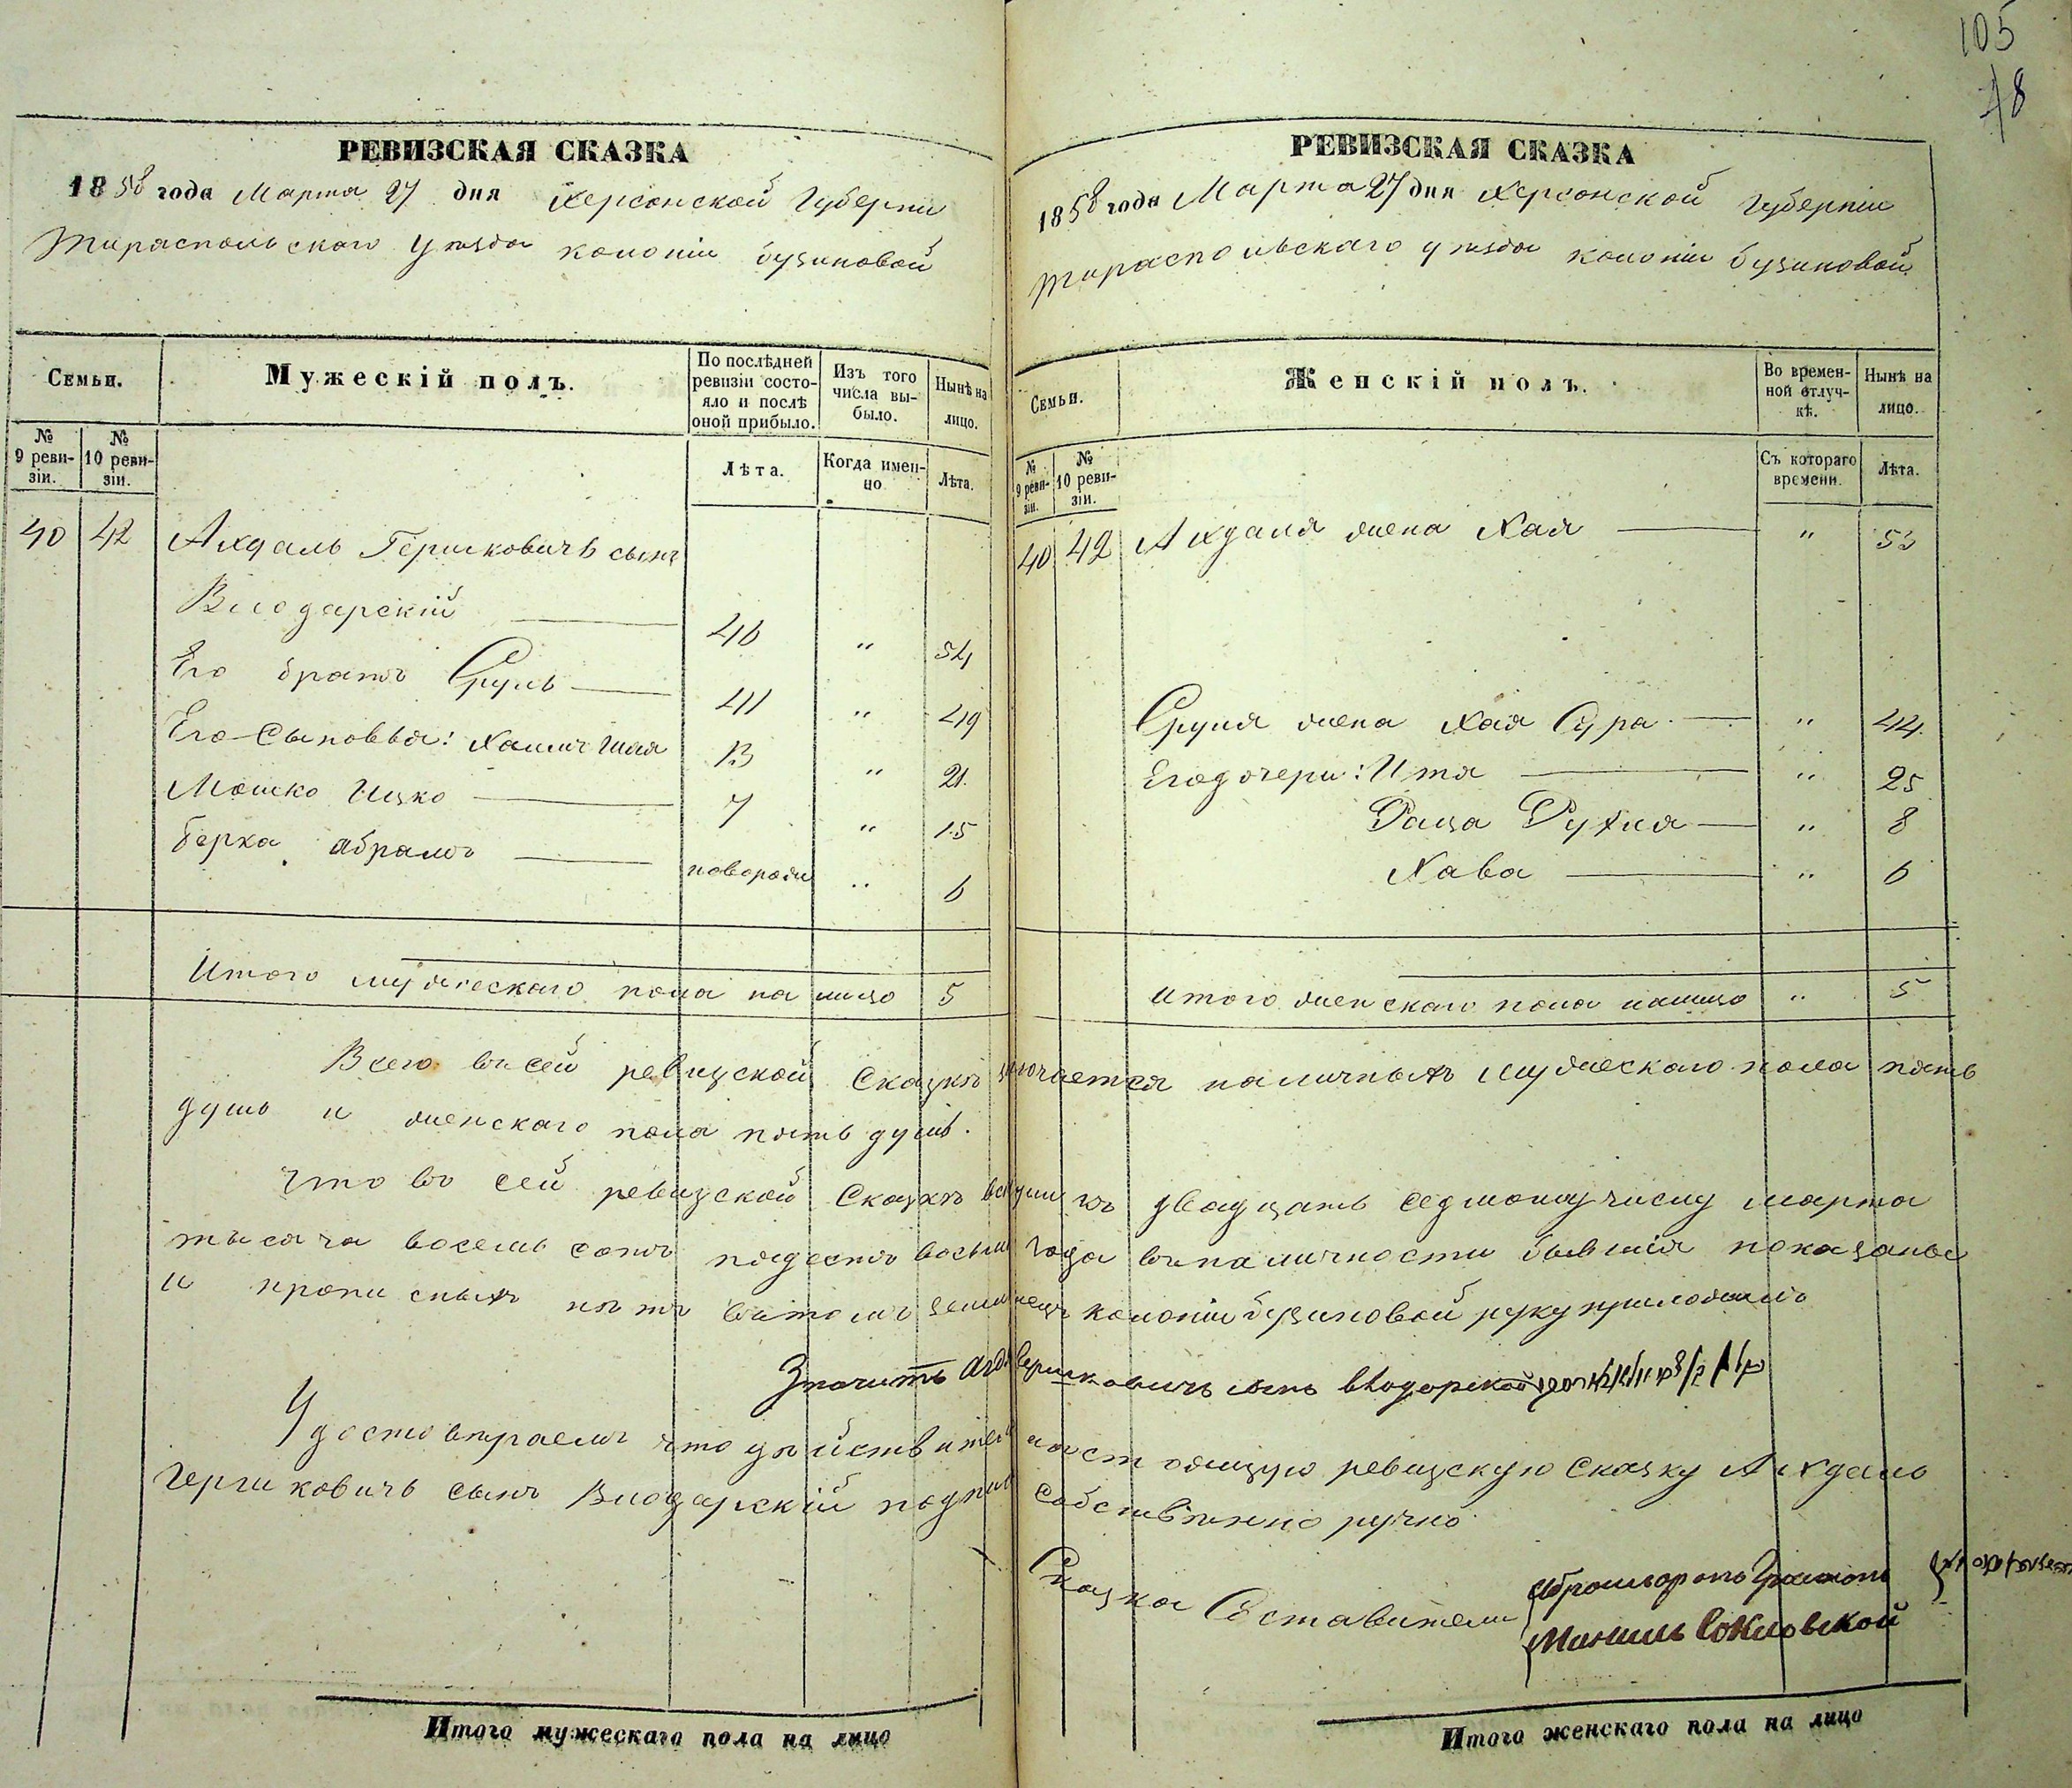 105
48
РЕВИЗСКАЯ СКАЗКА
1858 года Марта 27 дня Херсонской Губерніи
Тираспольскаго уѣзда колоніи бузиновой
Семьи.
Мужескій полъ.
По послѣдней ревизіи состояло и послѣ оной прибыло.
Изъ того числа выбыло.
Нынѣ на лицо.
№ 9 ревизіи.
№ 10 ревизіи.
Лѣта.
Когда именно
Лѣта.
40 42 Ахдаль Гершковичъ сынъ
Влодарскій 46 " 54
Его братъ Сруль 41 " 49
Его Сыновья: Хаимъ Шая 13 " 21.
Мошко Ицко 7 " 15
берка абрамъ новорож " 6
Итого мужескаго пола на лицо 5
РЕВИЗСКАЯ СКАЗКА
1858 года Марта 27 дня Херсонской Губерніи
тираспольскаго уѣзда колоніи бузиновой
Семьи.
Женскій полъ.
Во временной отлучкѣ.
Нынѣ на лицо.
№ 9 ревизіи.
№ 10 ревизіи.
Съ котораго времени.
Лѣта.
40 42 Ахдаля жена Хая " 53
Сруля жена Хая Сура " 44.
Его дочери: Итя " 25
Раца Рухля " 8
Хава " 6
итого женскаго пола налицо " 5
Всего въ сей ревизской Сказкѣ значается наличныхъ мужескаго пола пять
душъ и женскаго пола пять душъ.
Что въ сей ревизской Сказкѣ всѣ души къ двадцать седмому числу марта
тысяча восемь сотъ пядесятъ восьми года въ наличности бывшія показаны
и прописныхъ нѣтъ въ томъ колоніи бузиновой руку приложилъ
Значитъ Гершковичъ сынъ влодарской
Удостовѣряемъ что дѣйствител настоящую ревизскую Сказку Ахдаль
Гершковичъ сынъ Влодарскій подпис собственно ручно
Сказка Составители
Минаиль Соколовской
Итого мужескаго пола на лицо
Итого женскаго пола на лицо